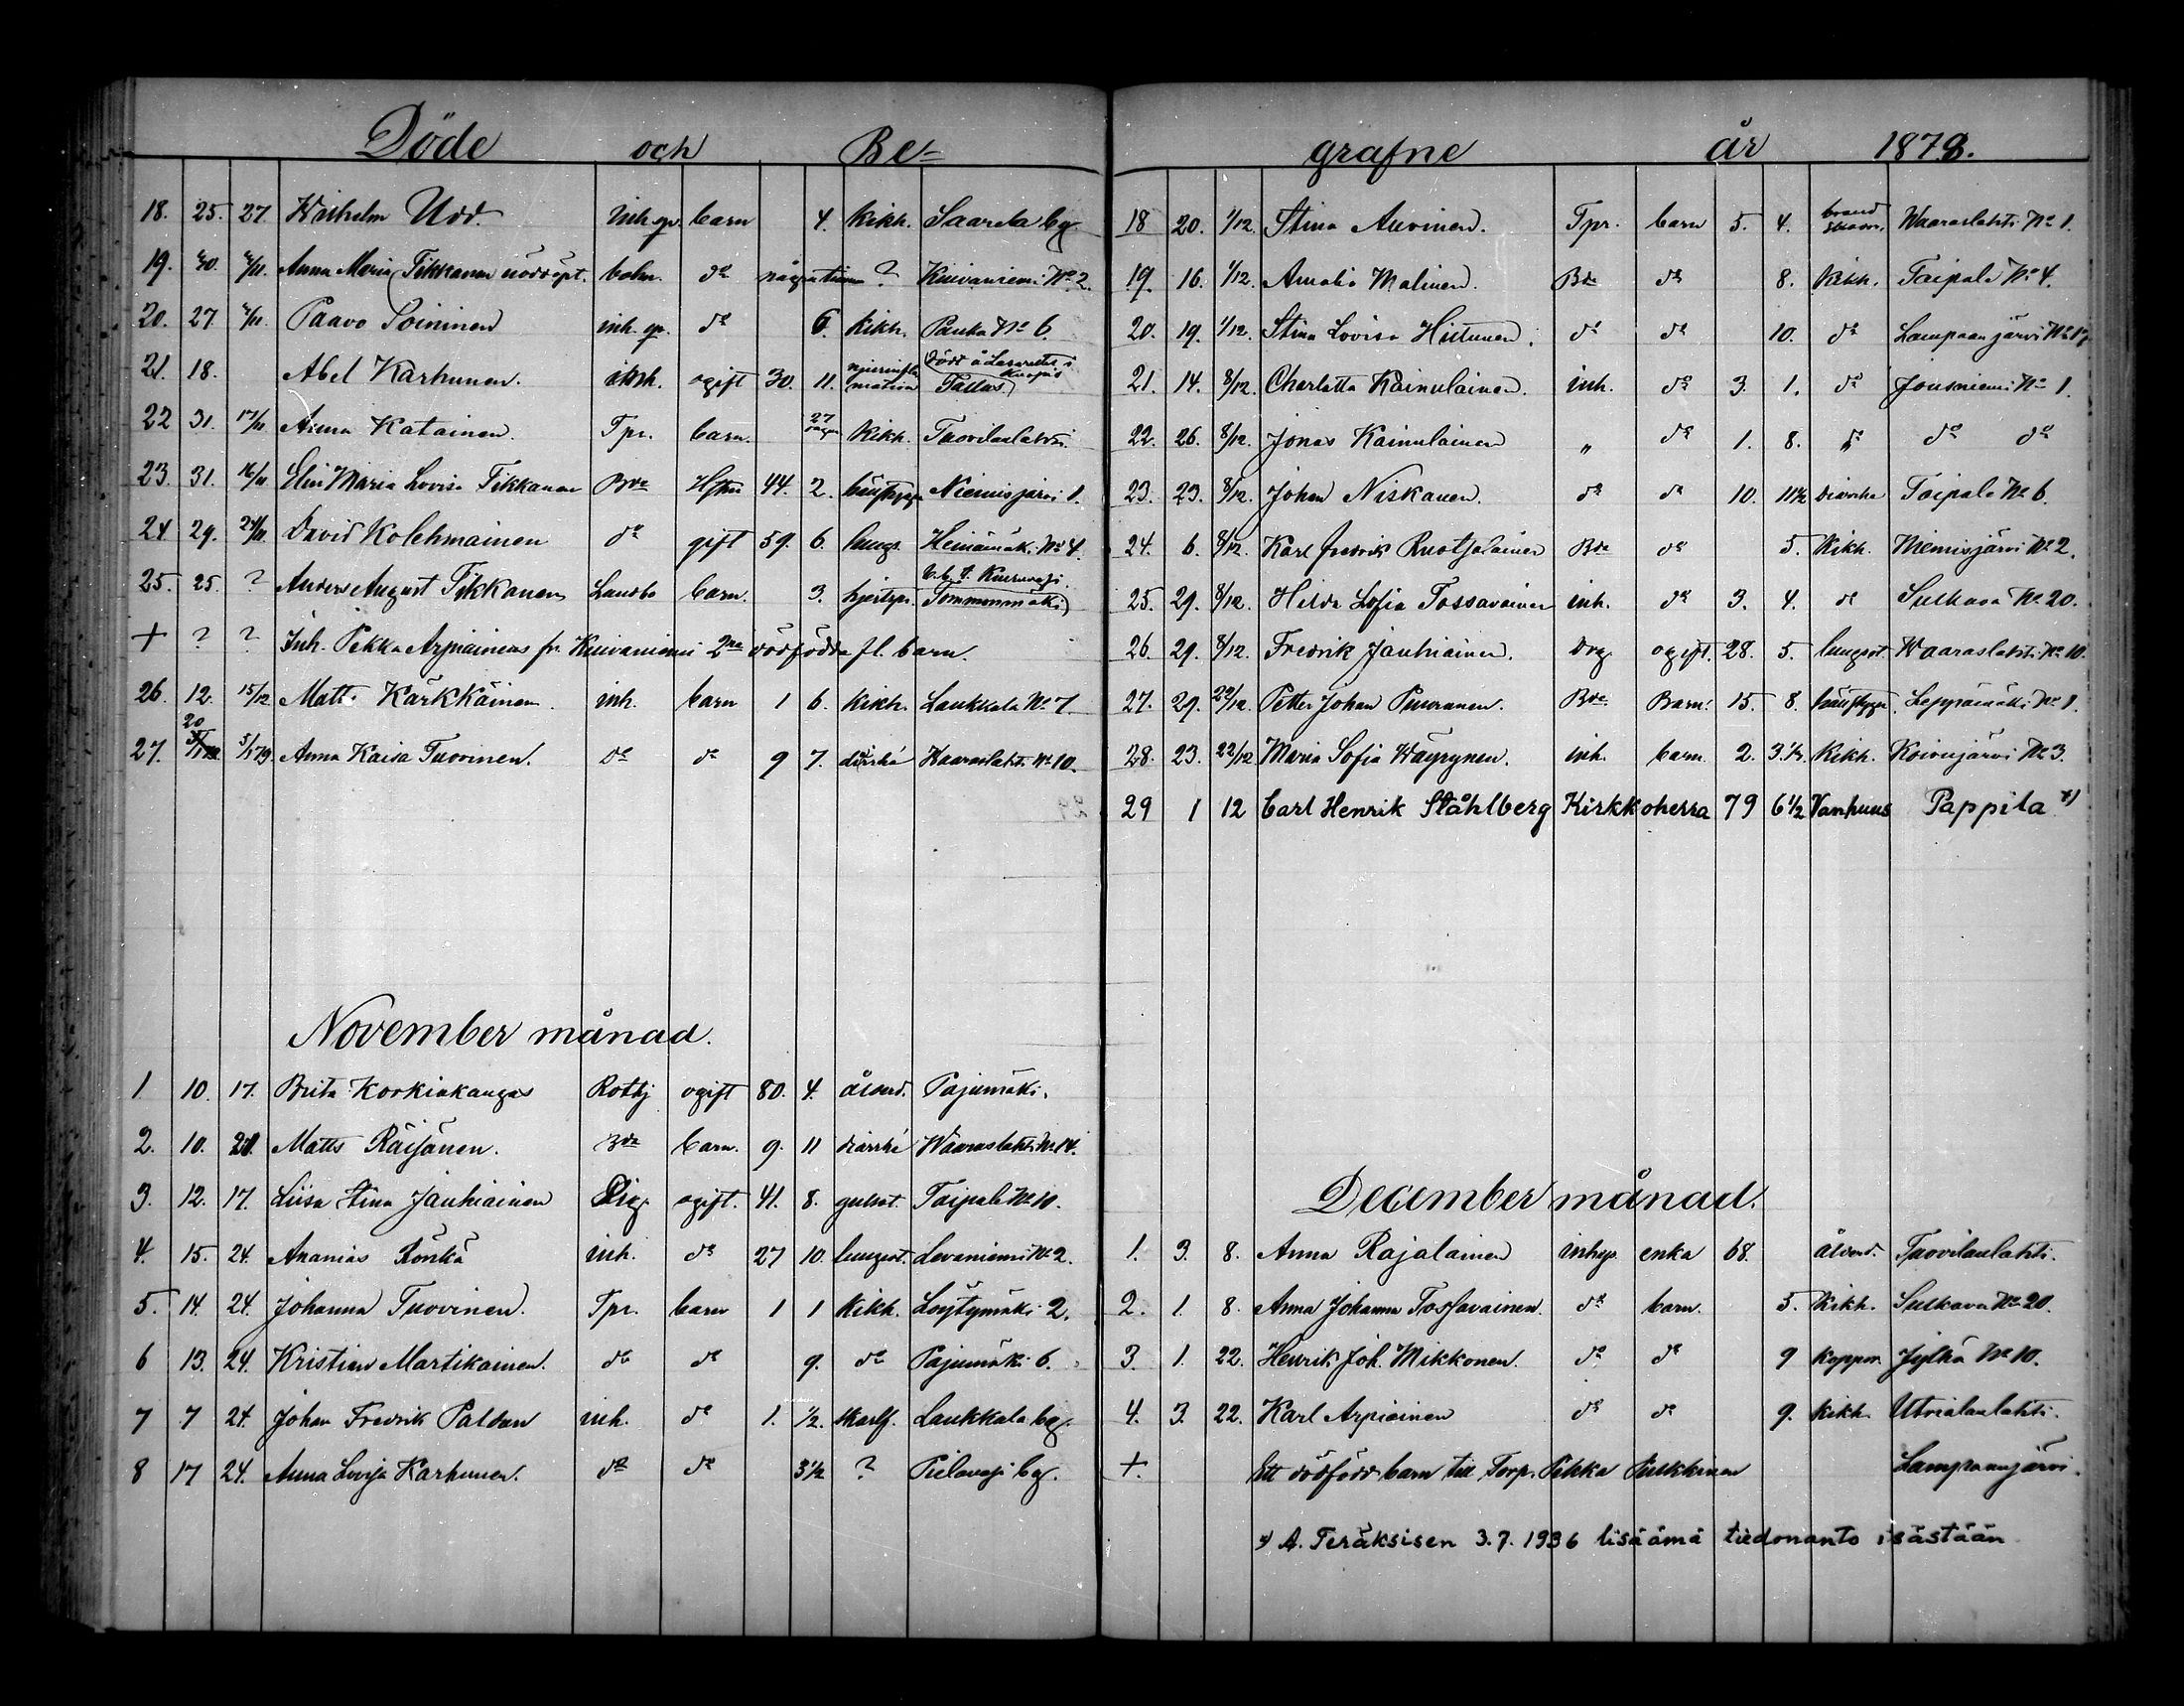 Döde och Be-
18. 25. 27. Wilhelm Udd inh. gr. barn 4. kikh. Saarela by.
19. 30. Anna Maria Tikkanen nöddöpt. bolm. d:o några timm ? Kuivaniemi No 2.
20. 27. Paavo Soininen inh. gr. d:o 6. kikh. Pauka No 6.
21. 18. Abel Karhunen. inh. ogift 30. 11. njurinflammation (Död å Lasarettet i Kuopio) Tallus.
22 31. 17/11 Anna Katainen. Tpr. barn. 27 dagar kikh. Tuovilanlahti
23. 31. 16/11 Elin Maria Lovisa Tikkanen Bde Hstru 44. 2. Niemisjärvi 1.
24 29. 24/11 David Kolehmainen d:o gift 59. 6. lungs. Heinämäki No 4.
25. 25. ? Anders August Tikkanen Landbo barn. 3. hjertspr. Tommonmäki)
+ ? ? Inh. Pekka Arpiainens fr. Kuivaniemi 2ne dödfödda fl. barn.
26. 12. 15/12 Matti Kärkkäinen. inh. barn 1 6. kikh. Laukkala No 7.
27. 20 5/1 79 Anna Kaisa Tuovinen. d:o d:o 9 7. diarrhé Waaraslahti No 10.
November månad.
1 10. 17. Brita Korkiakangas Rothj ogift 80. 4. ålderd. Pajumäki.
2. 10. 20. Matts Räisänen. Bde barn. 9. 11 diarrhé Waaraslahti No 14.
3. 12. 17. Liisa Stina Jauhiainen Drig ogift. 41. 8. gulsot. Taipale No 10.
4. 15. 24. Ananias Rönkä inh. d:o 27 10. lungsot. Levaniemi No 2.
5. 14. 24. Johanna Tuovinen. Tpr. barn 1 1 kikh. Löytymäki 2.
6 13. 24. Kristian Martikainen. d:o d:o 9. d:o Pajumäki 6.
7 7 24. Johan Fredrik Paldan inh. d:o 1. 1/2. skarlf. Laukkala by.
8 17 24. Anna Lovisa Karhunen. d:o d:o 3 1/2 ? Pielavesi by.
grafne år 1878.
18 20. 1/12. Stina Auvinen. Tpr. barn 5. 4. brand skador. Waaraslahti No 1.
19. 16. 1/12. Amalia Malinen. Bde d:o 8. kikh. Taipale No 4.
20. 19. 1/12. Stina Lovisa Hiltunen. d:o d:o 10. d:o Lampaanjärvi
21. 14. 8/12. Charlotta Kainulainen. inh. d:o 3. 1. d:o Jousniemi No 1.
22. 26. 8/12. Jonas Kainulainen " d:o 1. 8. d:o d:o d:o
23. 23. 8/12. Johan Niskanen. d:o d:o 10. 11 1/2 diarrhe Taipale No 6.
24. 6. 8/12. Karl Fredrik Ruotsalainen Bde d:o 5. kikh. Niemisjärvi No 2.
25. 29. 8/12. Hilda Sofia Tossavainen inh. d:o 3. 4. d:o Sulkava No 20.
26. 29. 8/12. Fredrik Jauhiainen. Drg ogift. 28. 5. lungsot Waaraslahti No 10.
27. 29. 22/12. Petter Johan Puuranen. Bde Barn. 15. 8. Leppämäki No 1.
28. 23. 22/12 Maria Sofia Wäyrynen. inh. barn. 2. 3 1/2. kikh. Koivujärvi No 3.
29 1 12 Carl Henrik Ståhlberg Kirkkoherra 79 6 1/2 Vanhuus Pappila x)
December månad.
1. 3. 8. Anna Rajalainen inhys. enka 68. ålderd. Tuovilanlahti.
2. 1. 8. Anna Johanna Tossavainen. d:o barn. 5. kikh. Sulkava No 20.
3. 1. 22. Henrik Joh. Mikkonen. d:o d:o 9 koppor. Jylhä No 10.
4. 3. 22. Karl Arpiainen d:o d:o 9. kikh. Utrialanlahti.
+. Ett dödfödd barn till Torp. Pekka Pulkkinen Lampaanjärvi.
x) A. Teräksisen 3.7. 1936 lisäämä tiedonanto isästään